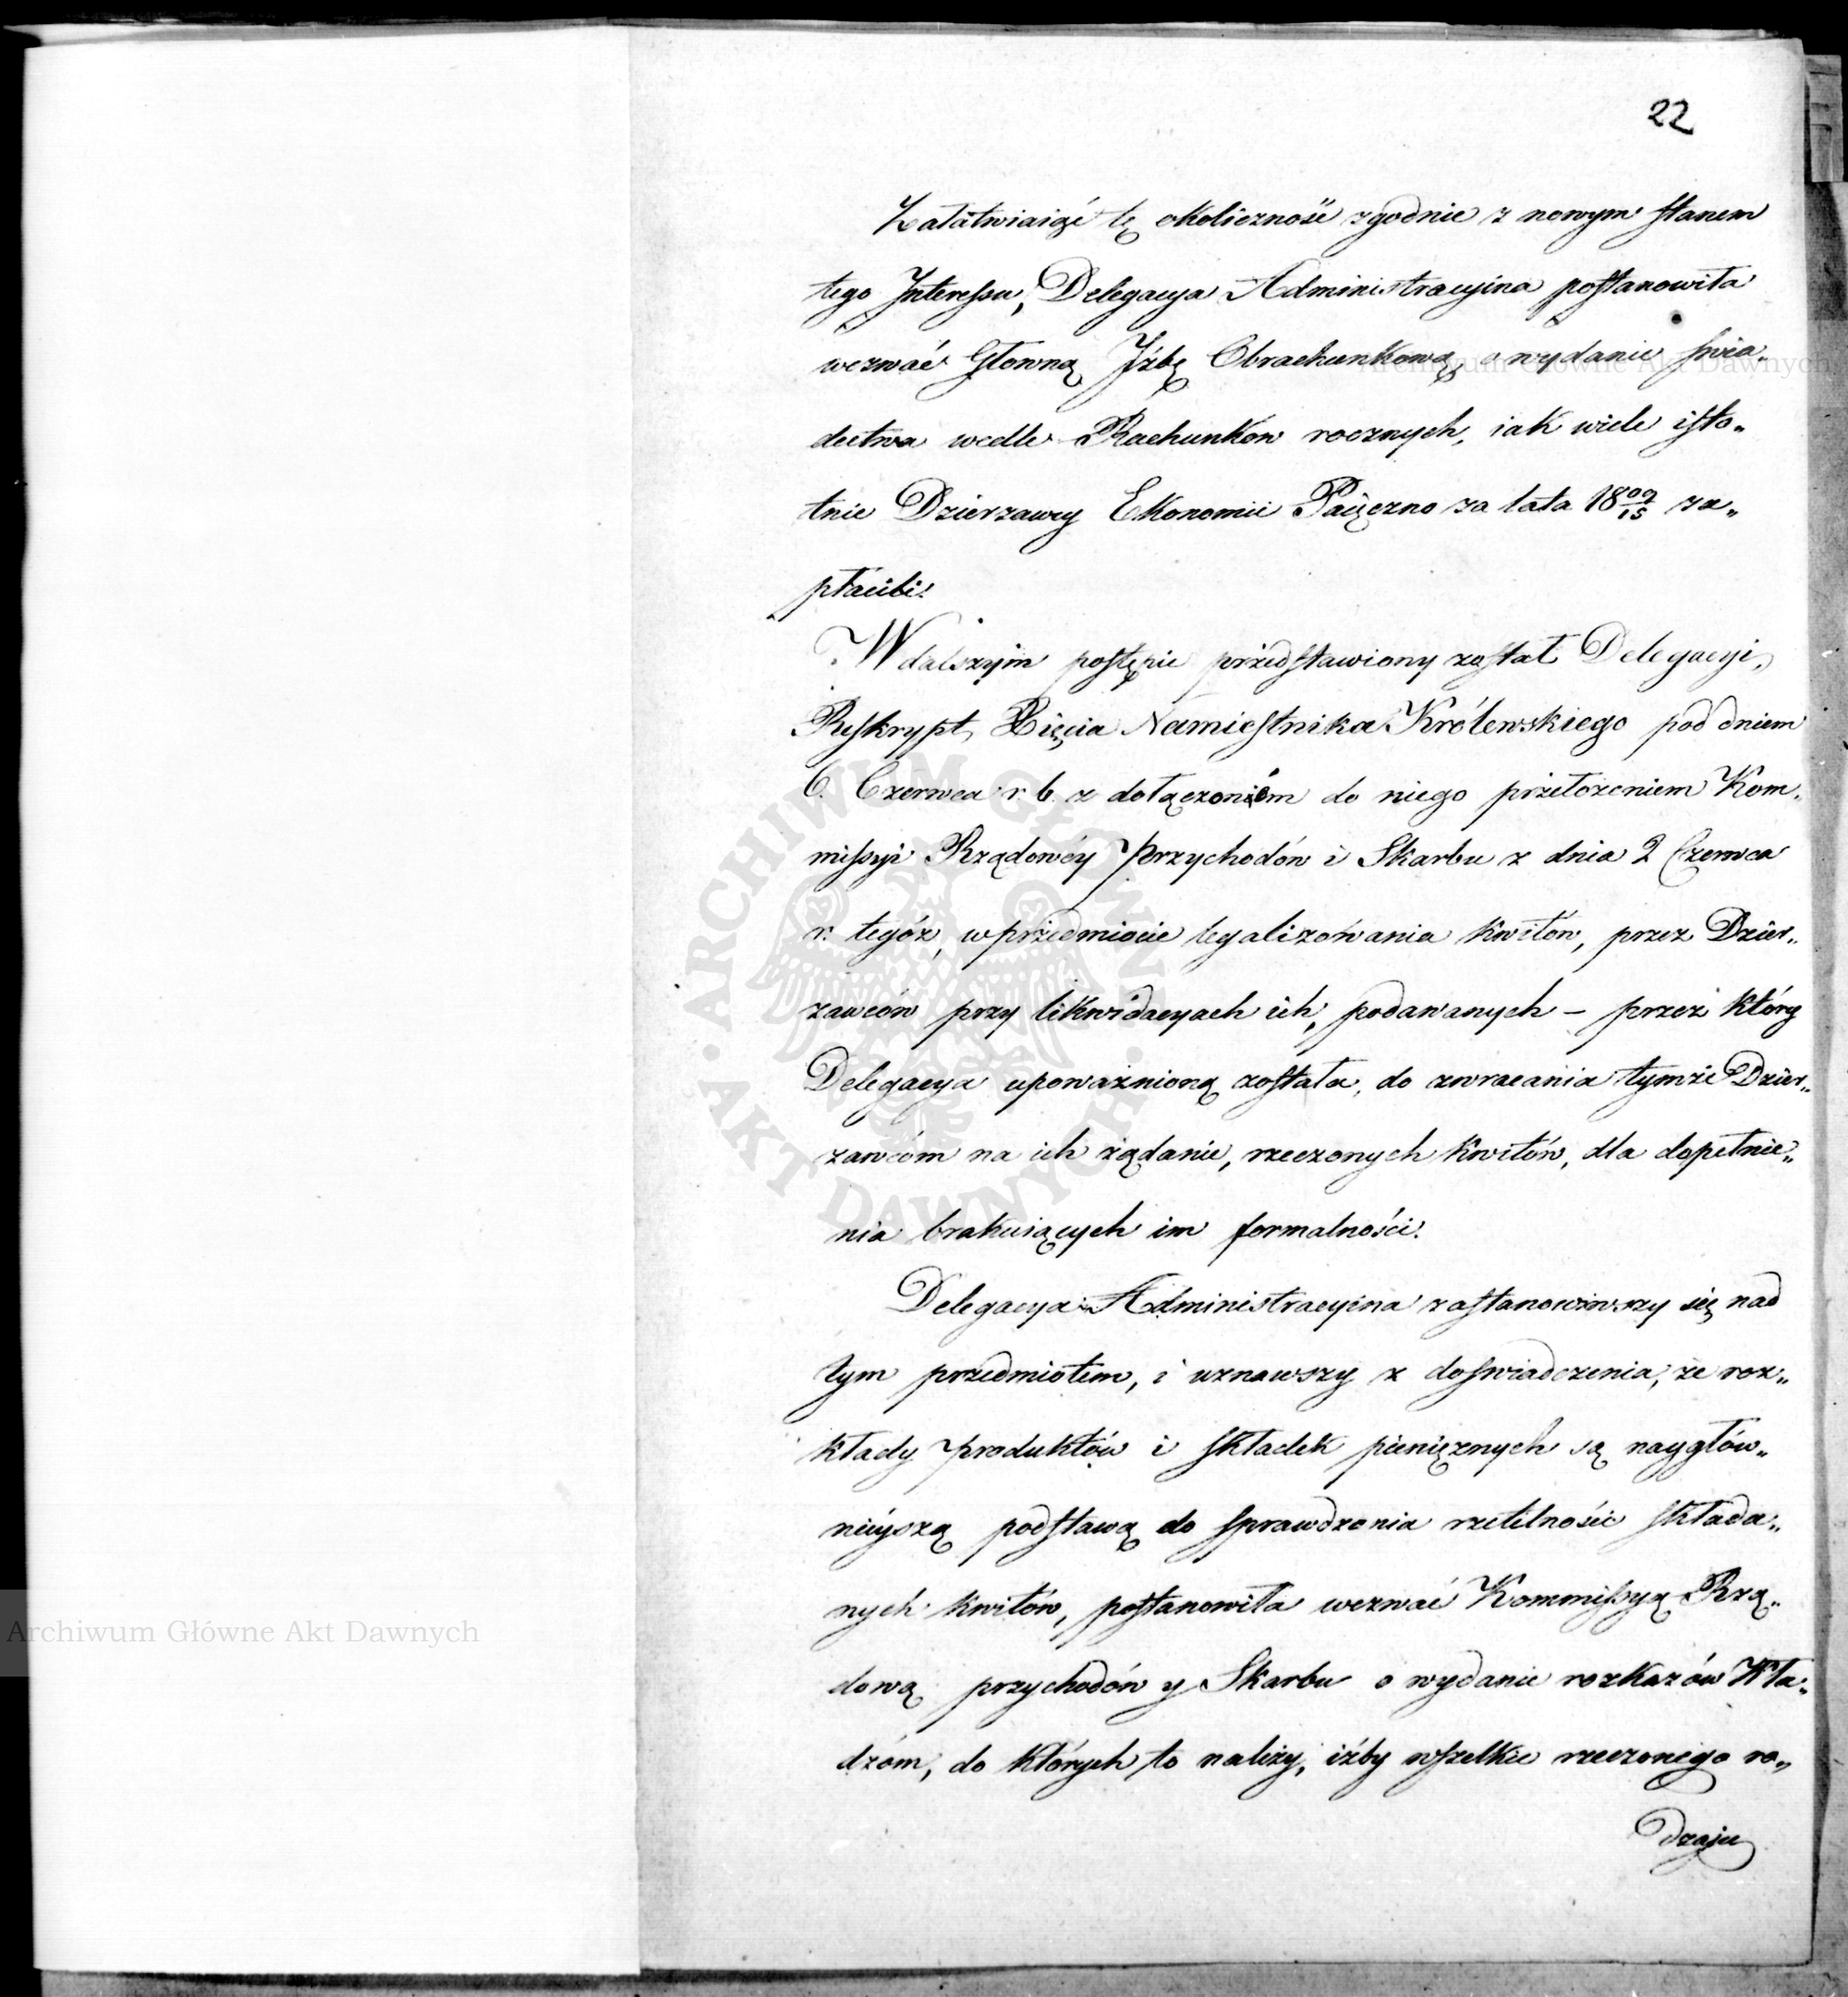 22
Załatwiaiąć tę okoliczność zgodnie z nowym stanem
tego Interessu, Delegacya Administracyina postanowiła
wezwać Głowną Jzbę Obrachunkową, o wydanie świa„
dectwa wedle Rachunkow rocznych, iak wiele isto„
tnie Dzierzawcy Ekonomii Paięczno za lata 18 09/15 za„
płacili.
W dalszym postępie przedstawiony został Delegacyi,
Reskrypt, Xięcia Namiestnika Królewskiego pod dniem
6. Czerwca r. b. z dołączoniem do niego przełożeniem Kom„
missyi Rządowéy Przychodów i Skarbu z dnia 2 Czerwca
r. tegóż, w przedmiocie legalizowania kwitów, przez Dzier„
zawców przy likwidacyach ich, podawanych – przez który
Delegacya upoważnioną została, do zwracania tymże Dzier„
zawcóm na ich żądanie, rzeczonych kwitów, dla dopełnie„
nia brakuiących im formalności.
Delegacya Administracyina zastanowiwszy się nad
tym przedmiotem, i uznawszy z doświadczenia, że roz„
kłady produktów i składek pieniężnych są naygłów„
nieyszą podstawą do sprawdzenia rzetelności składa„
nych kwitów, postanowiła wezwać Kommissyą Rzą„
dową przychodów y Skarbu o wydanie rozkazów Wła„
dzóm, do których to należy, iżby wszelkie rzeczonego ro„
dzaju
Archiwum Główne Akt Dawnych
Archiwum Główne Akt Dawnych
ARCHIWUM GŁÓWNE · AKT DAWNYCH ·